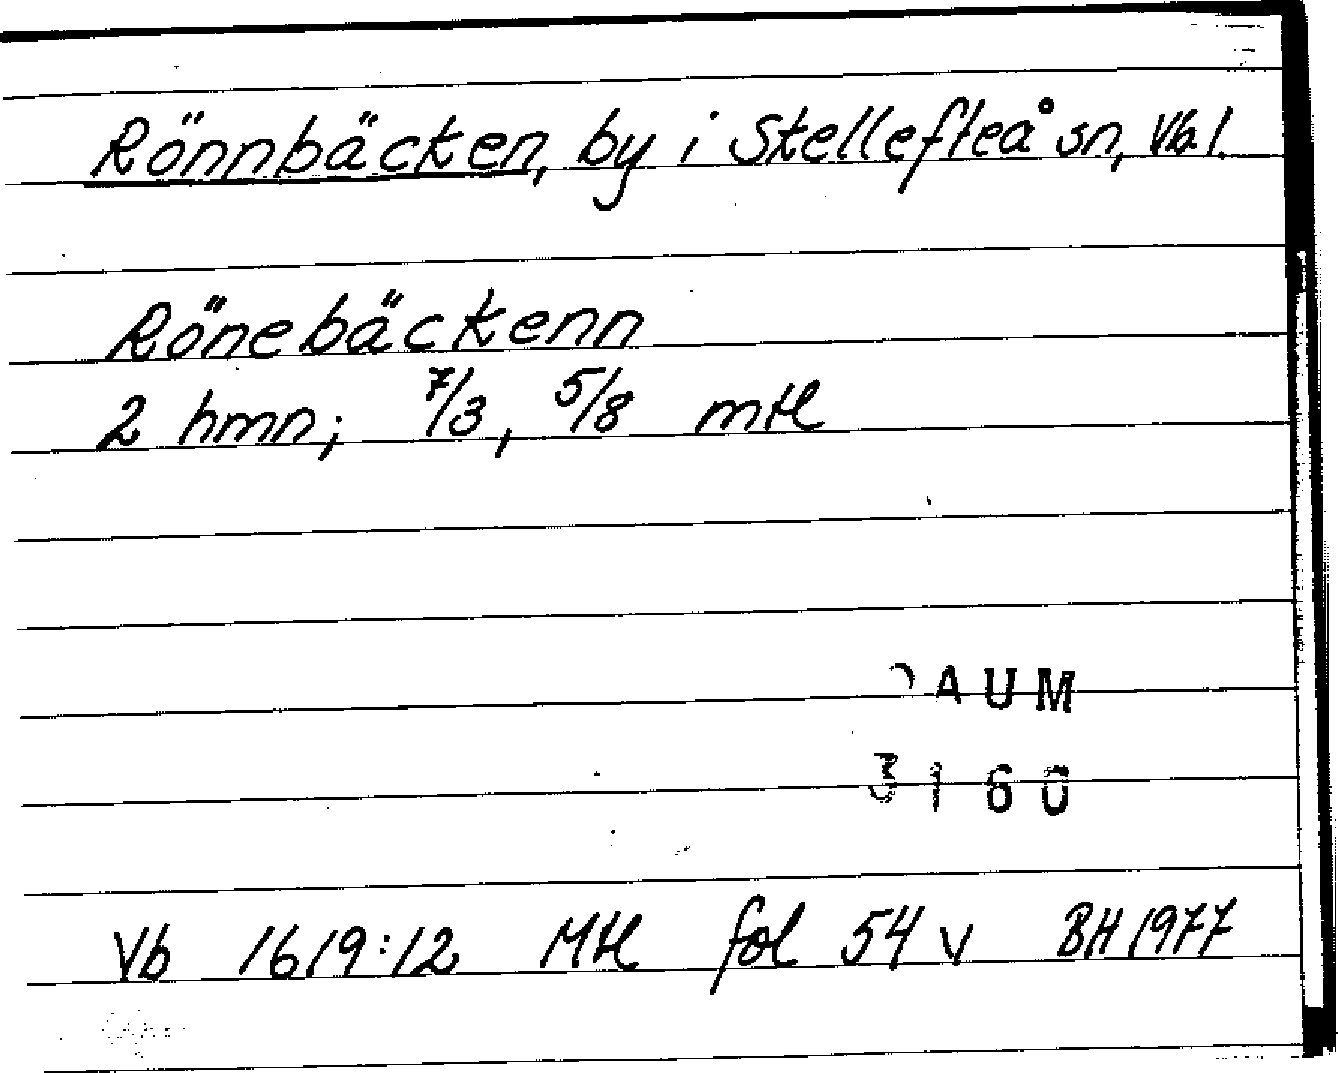 Rönnbäcken, by i Skellefteå sn, Vb.l.
Rönebäckenn
2 hmn; 7/3, 5/8 mtl
DAUM
3160
Vb 1619:12 Mtl fol 54 v BH 1977